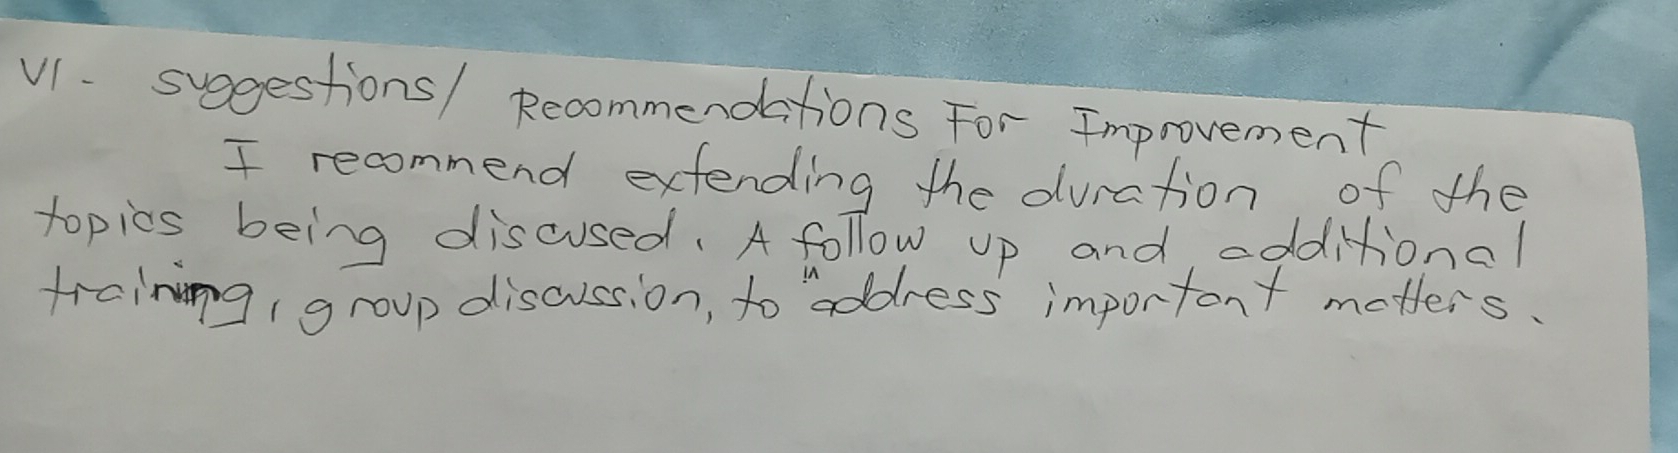 VI - Suggestions/ Recommendations For Improvement
I recommend extending the duration of the
topics being discused. A follow up and additional
training, group discussion, to in address important matters.